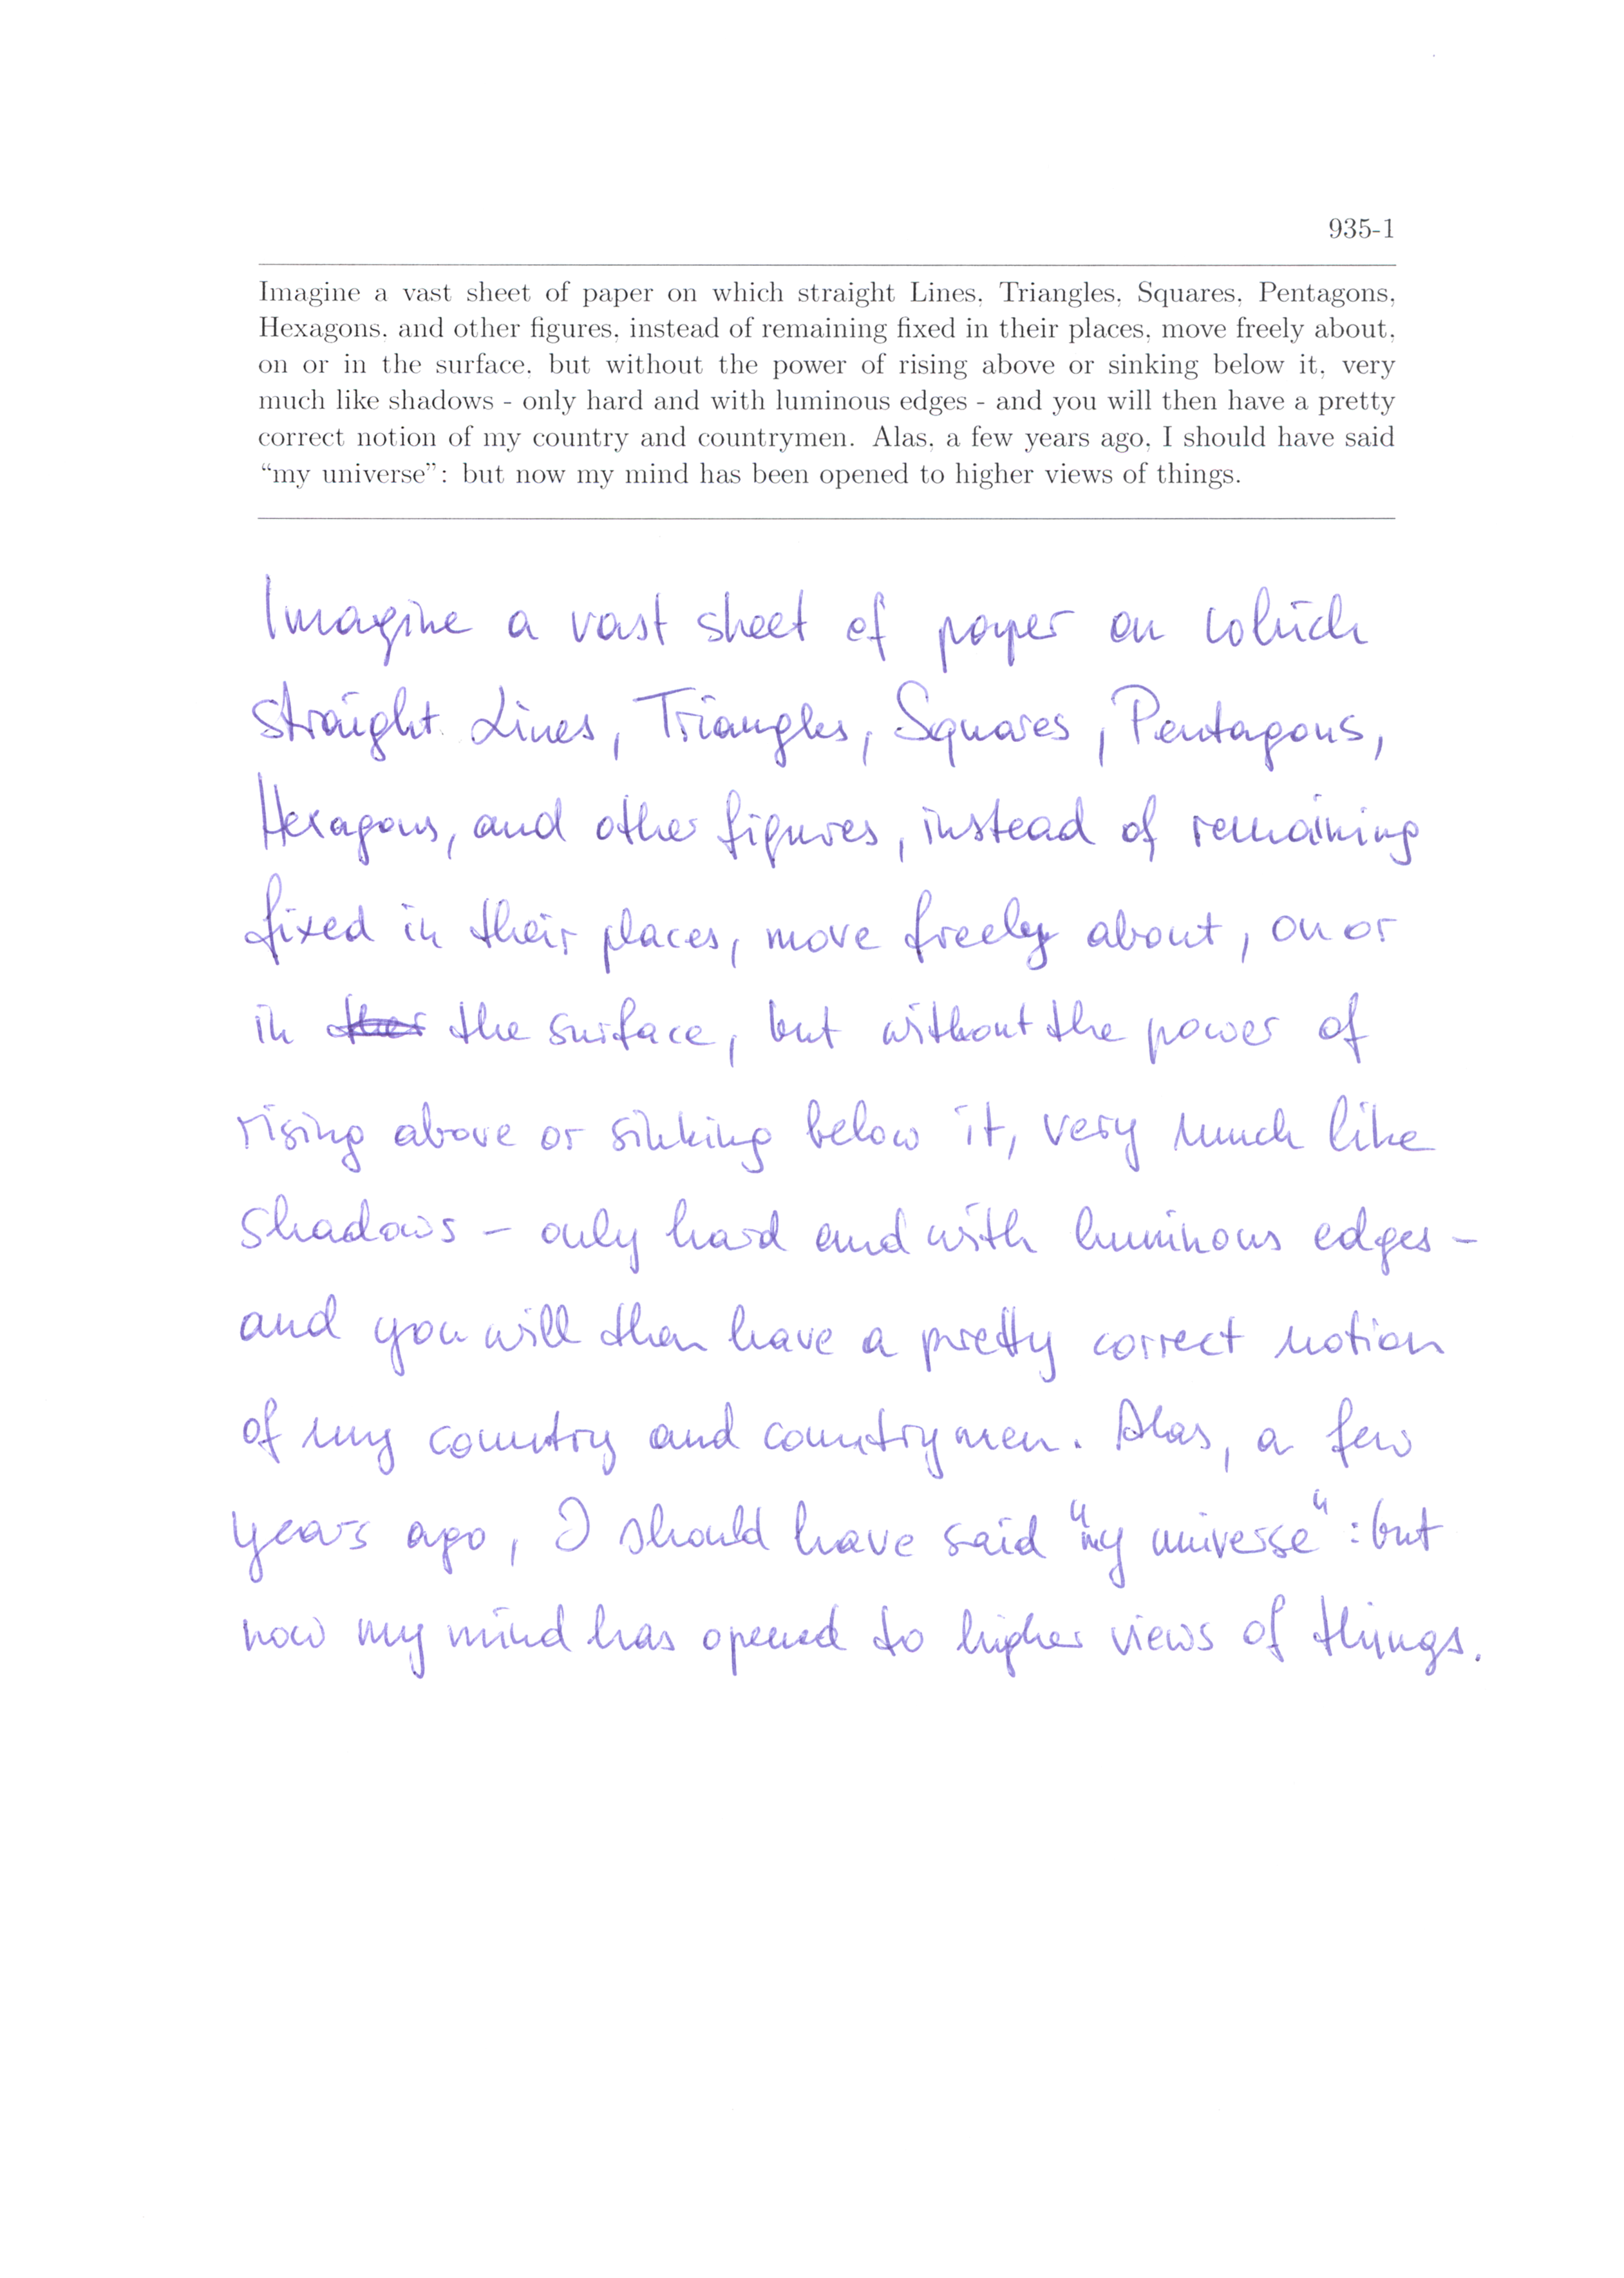 935-1
Imagine a vast sheet of paper on which straight Lines, Triangles, Squares, Pentagons,
Hexagons, and other figures, instead of remaining fixed in their places, move freely about,
on or in the surface, but without the power of rising above or sinking below it, very
much like shadows - only hard and with luminous edges - and you will then have a pretty
correct notion of my country and countrymen. Alas, a few years ago, I should have said
“my universe”: but now my mind has been opened to higher views of things.
Imagine a vast sheet of paper on which
straight Lines, Triangles, Squares, Pentagons,
Hexagons, and other figures, instead of remaining
fixed in their places, move freely about, on or
in the surface, but without the power of
rising above or sinking below it, very much like
shadows - only hard and with luminous edges -
and you will then have a pretty correct notion
of my country and countrymen. Alas, a few
years ago, I should have said "my universe": but
now my mind has opened to higher views of things.